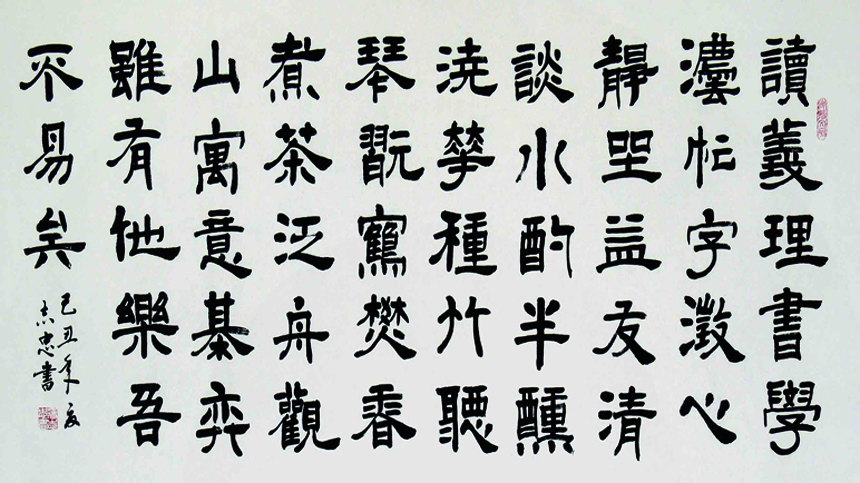 讀義理書學
灋帖字澂心
靜坐益友清
談水酌半醺
澆華種竹聽
琴翫鶴焚香
煮茶泛舟觀
山寓意棊弈
雖有他樂吾
不易矣
己丑年夏
志忠書